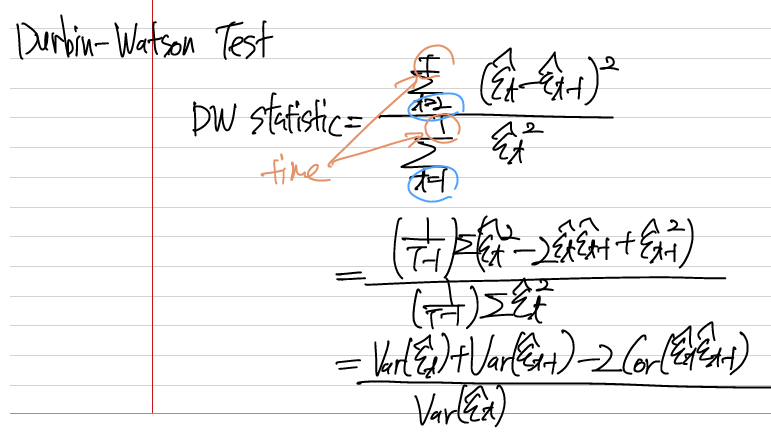 Durbin-Watson Test
DW statistic = \frac{\sum_{t=2}^{T} (\hat{ε}_t - \hat{ε}_{t-1})^2}{\sum_{t=1}^{T} \hat{ε}_t^2}
time
= \frac{(\frac{1}{T-1}) Σ(\hat{ε}_t^2 - 2\hat{ε}_t\hat{ε}_{t-1} + \hat{ε}_{t-1}^2)}{(\frac{1}{T-1}) Σ\hat{ε}_t^2}
= \frac{Var(\hat{ε}_t) + Var(\hat{ε}_{t-1}) - 2Cov(\hat{ε}_t\hat{ε}_{t-1})}{Var(\hat{ε}_t)}